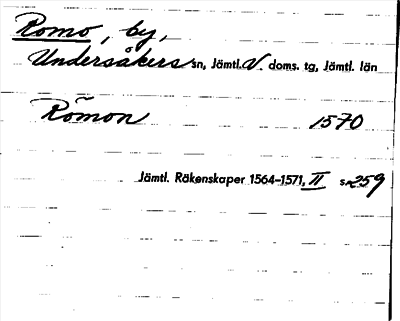 Romo, by,
Undersåkers sn, Jämtl. V. doms. tg, Jämtl. län
Römon 1570
Jämtl. Räkenskaper 1564–1571, II s. 259